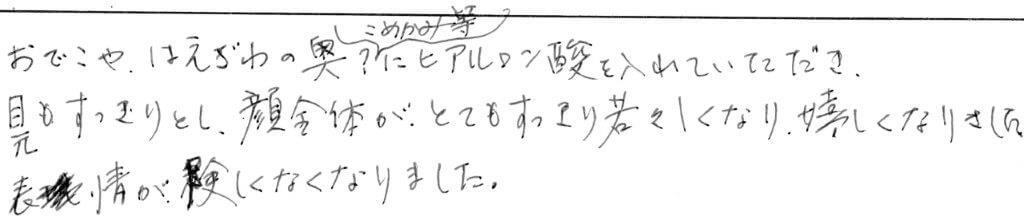 こめかみ等
おでこや、はえぎわの奥?にヒアルロン酸を入れていただき、
目元もすっきりとし、顔全体が、とてもすっきり若々しくなり、嬉しくなりました
表情が、険しくなくなりました。